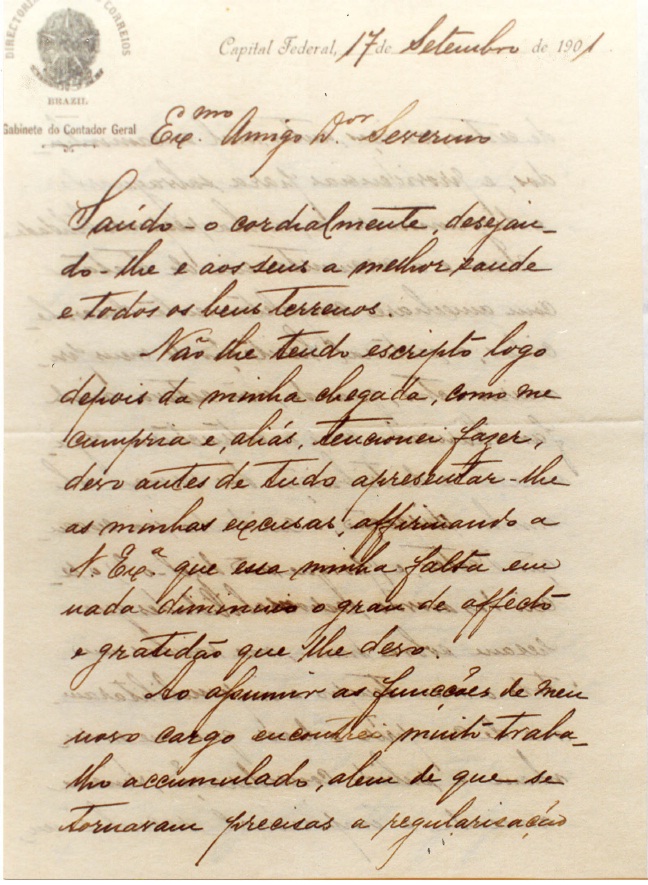 DIRECTORIA CORREIOS
BRAZIL
Gabinete do Contador Geral
Capital Federal, 17 de Setembro de 1901
Ex.mo Amigo D.or Severino
Saúdo-o cordialmente, desejan-
do-lhe e aos seus a melhor saude
e todos os bens terrenos.
Não lhe tendo escripto logo
depois da minha chegada, como me
cumpria e, aliás, tencionei fazer,
devo antes de tudo apresentar-lhe
as minhas excusas, affirmando a
V. Ex.a que essa minha falta em
nada diminuio o grau de affecto
e gratidão que lhe devo.
Ao assumir as funcções de meu
novo cargo encontrei muito traba-
lho accumulado, alem de que se
tornavam precisas a regularisação